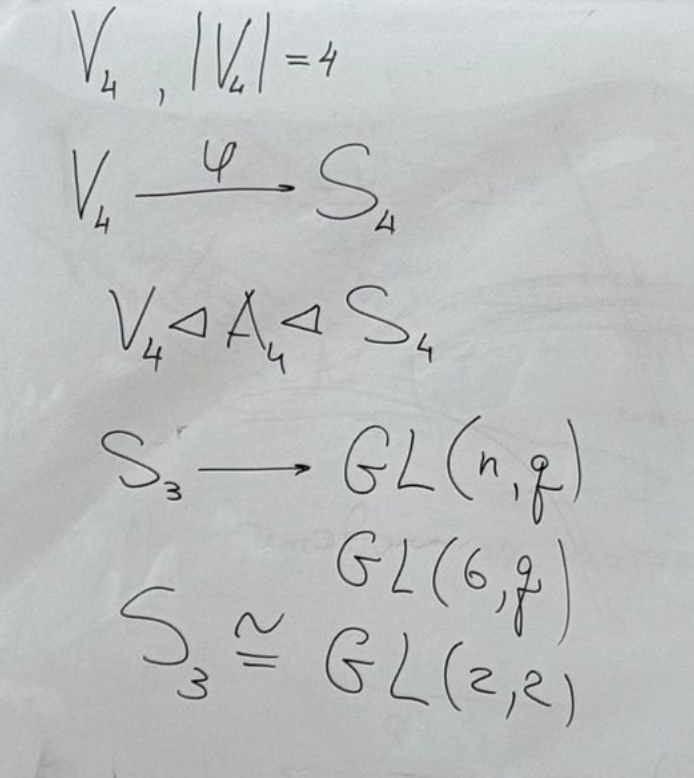 V₄, |V₄| = 4
V₄ —φ→ S₄
V₄ ⊲ A₄ ⊲ S₄
S₃ ⟶ GL(n,q)
GL(6,q)
S₃ ≅ GL(2,2)